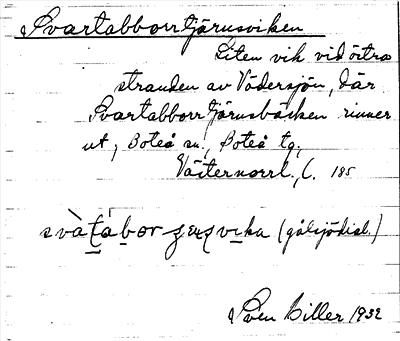 Svartabborrtjärnsviken
Liten vik vid östra
stranden av Vådersjön, där
Svartabborrtjärnsbäcken rinner
ut, Boteå sn., Boteå tg,
Västernorrl. l. 185
(gålsjödial.)
Sven Hiller 1932